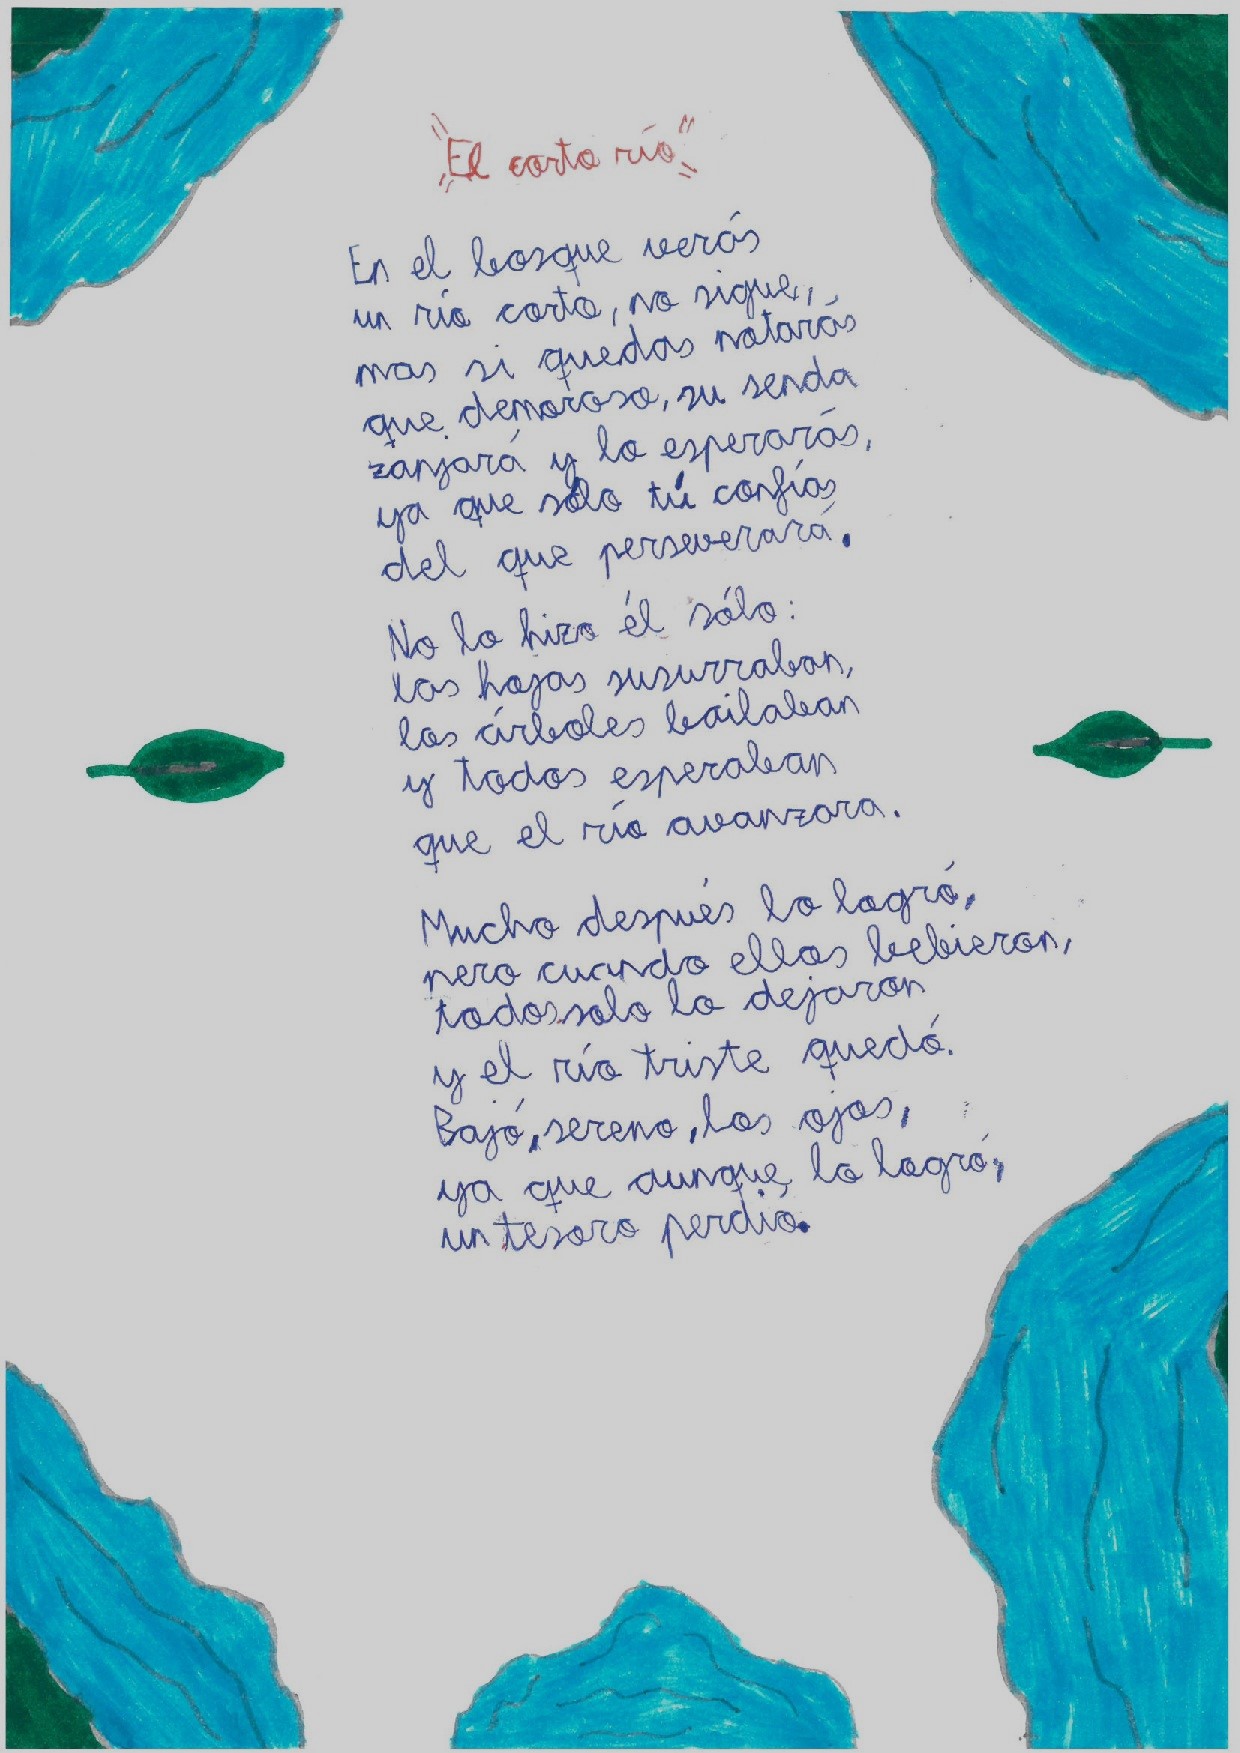 El corto río
En el bosque verás
un río corto, no sigue,
mas si quedas notarás
que demoroso, su senda
zanjará y lo esperarás,
ya que sólo tú confías
del que perseverará.
No lo hizo él sólo:
las hojas susurraban,
los árboles bailaban
y todos esperaban
que el río avanzara.
Mucho después lo logró,
pero cuando ellos bebieron,
todos solo lo dejaron
y el río triste quedó.
Bajó, sereno, los ojos,
ya que aunque lo logró,
un tesoro perdió.